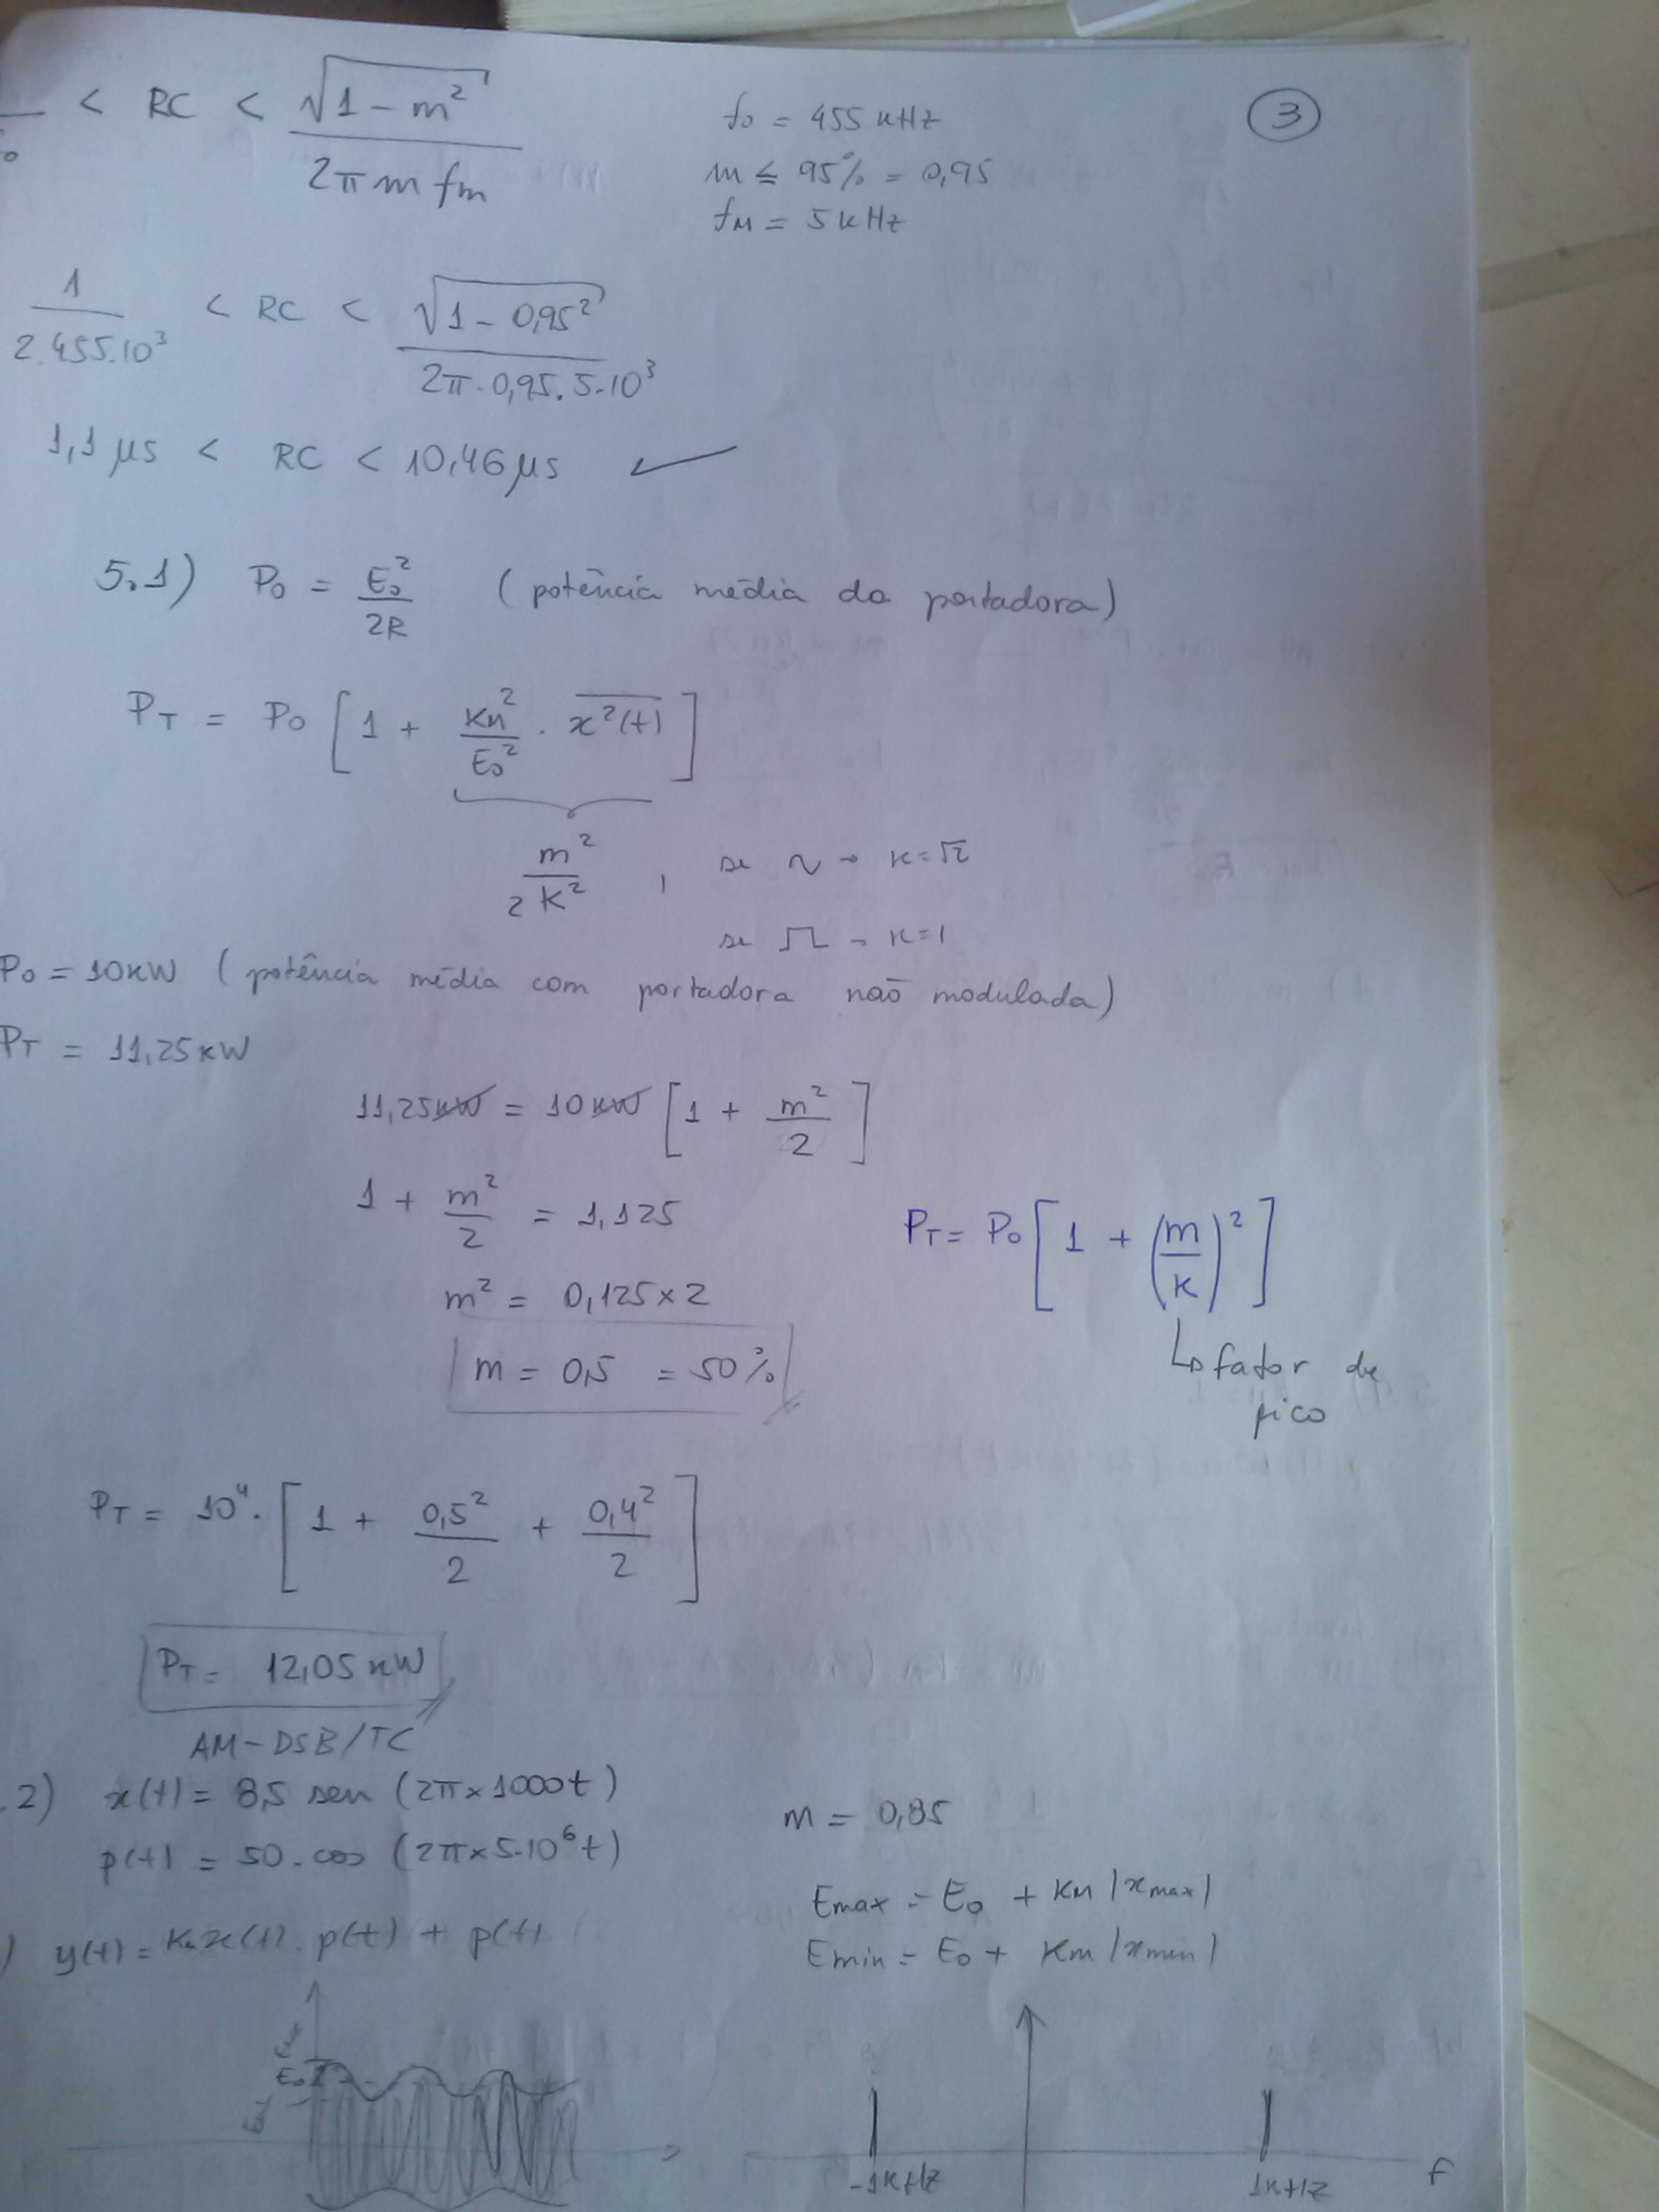 < RC < √(1 - m²) / 2π m fm
fo = 455 kHz
③
m ≤ 95% = 0,95
fm = 5 kHz
1 / 2.455.10³ < RC < √(1 - 0,95²) / 2π.0,95.5.10³
1,1 μs < RC < 10,46 μs ✓
5.1) Po = Eo² / 2R (potência média da portadora)
PT = Po [1 + Km²/Eo² . x²(t)]
m² / 2 K² , se ∿ → K = √2
se ⊓ → K = 1
Po = 10 kW (potência média com portadora não modulada)
PT = 11,25 kW
11,25 kW = 10 kW [1 + m²/2]
1 + m²/2 = 1,125
PT = Po [1 + (m/K)²]
m² = 0,125 x 2
↳ fator de
pico
m = 0,5 = 50%
PT = 10⁴ . [1 + 0,5²/2 + 0,4²/2]
PT = 12,05 kW
AM-DSB/TC
.2) x(t) = 8,5 sen (2π x 1000t)
m = 0,85
p(t) = 50 . cos (2π x 5.10⁶t)
Emax = Eo + Km |xmax|
) y(t) = Km x(t) . p(t) + p(t)
Emin = Eo + Km |xmin|
Eo
-1kHz
1kHz
f